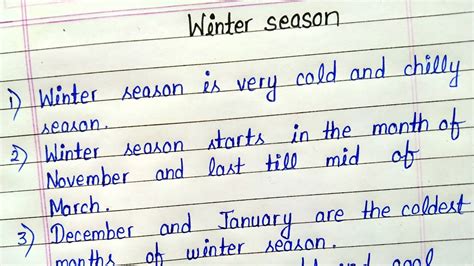 Winter season
1) Winter season is very cold and chilly
season.
2) Winter season starts in the month of
November and last till mid of
March.
3) December and January are the coldest
months of winter season.
and